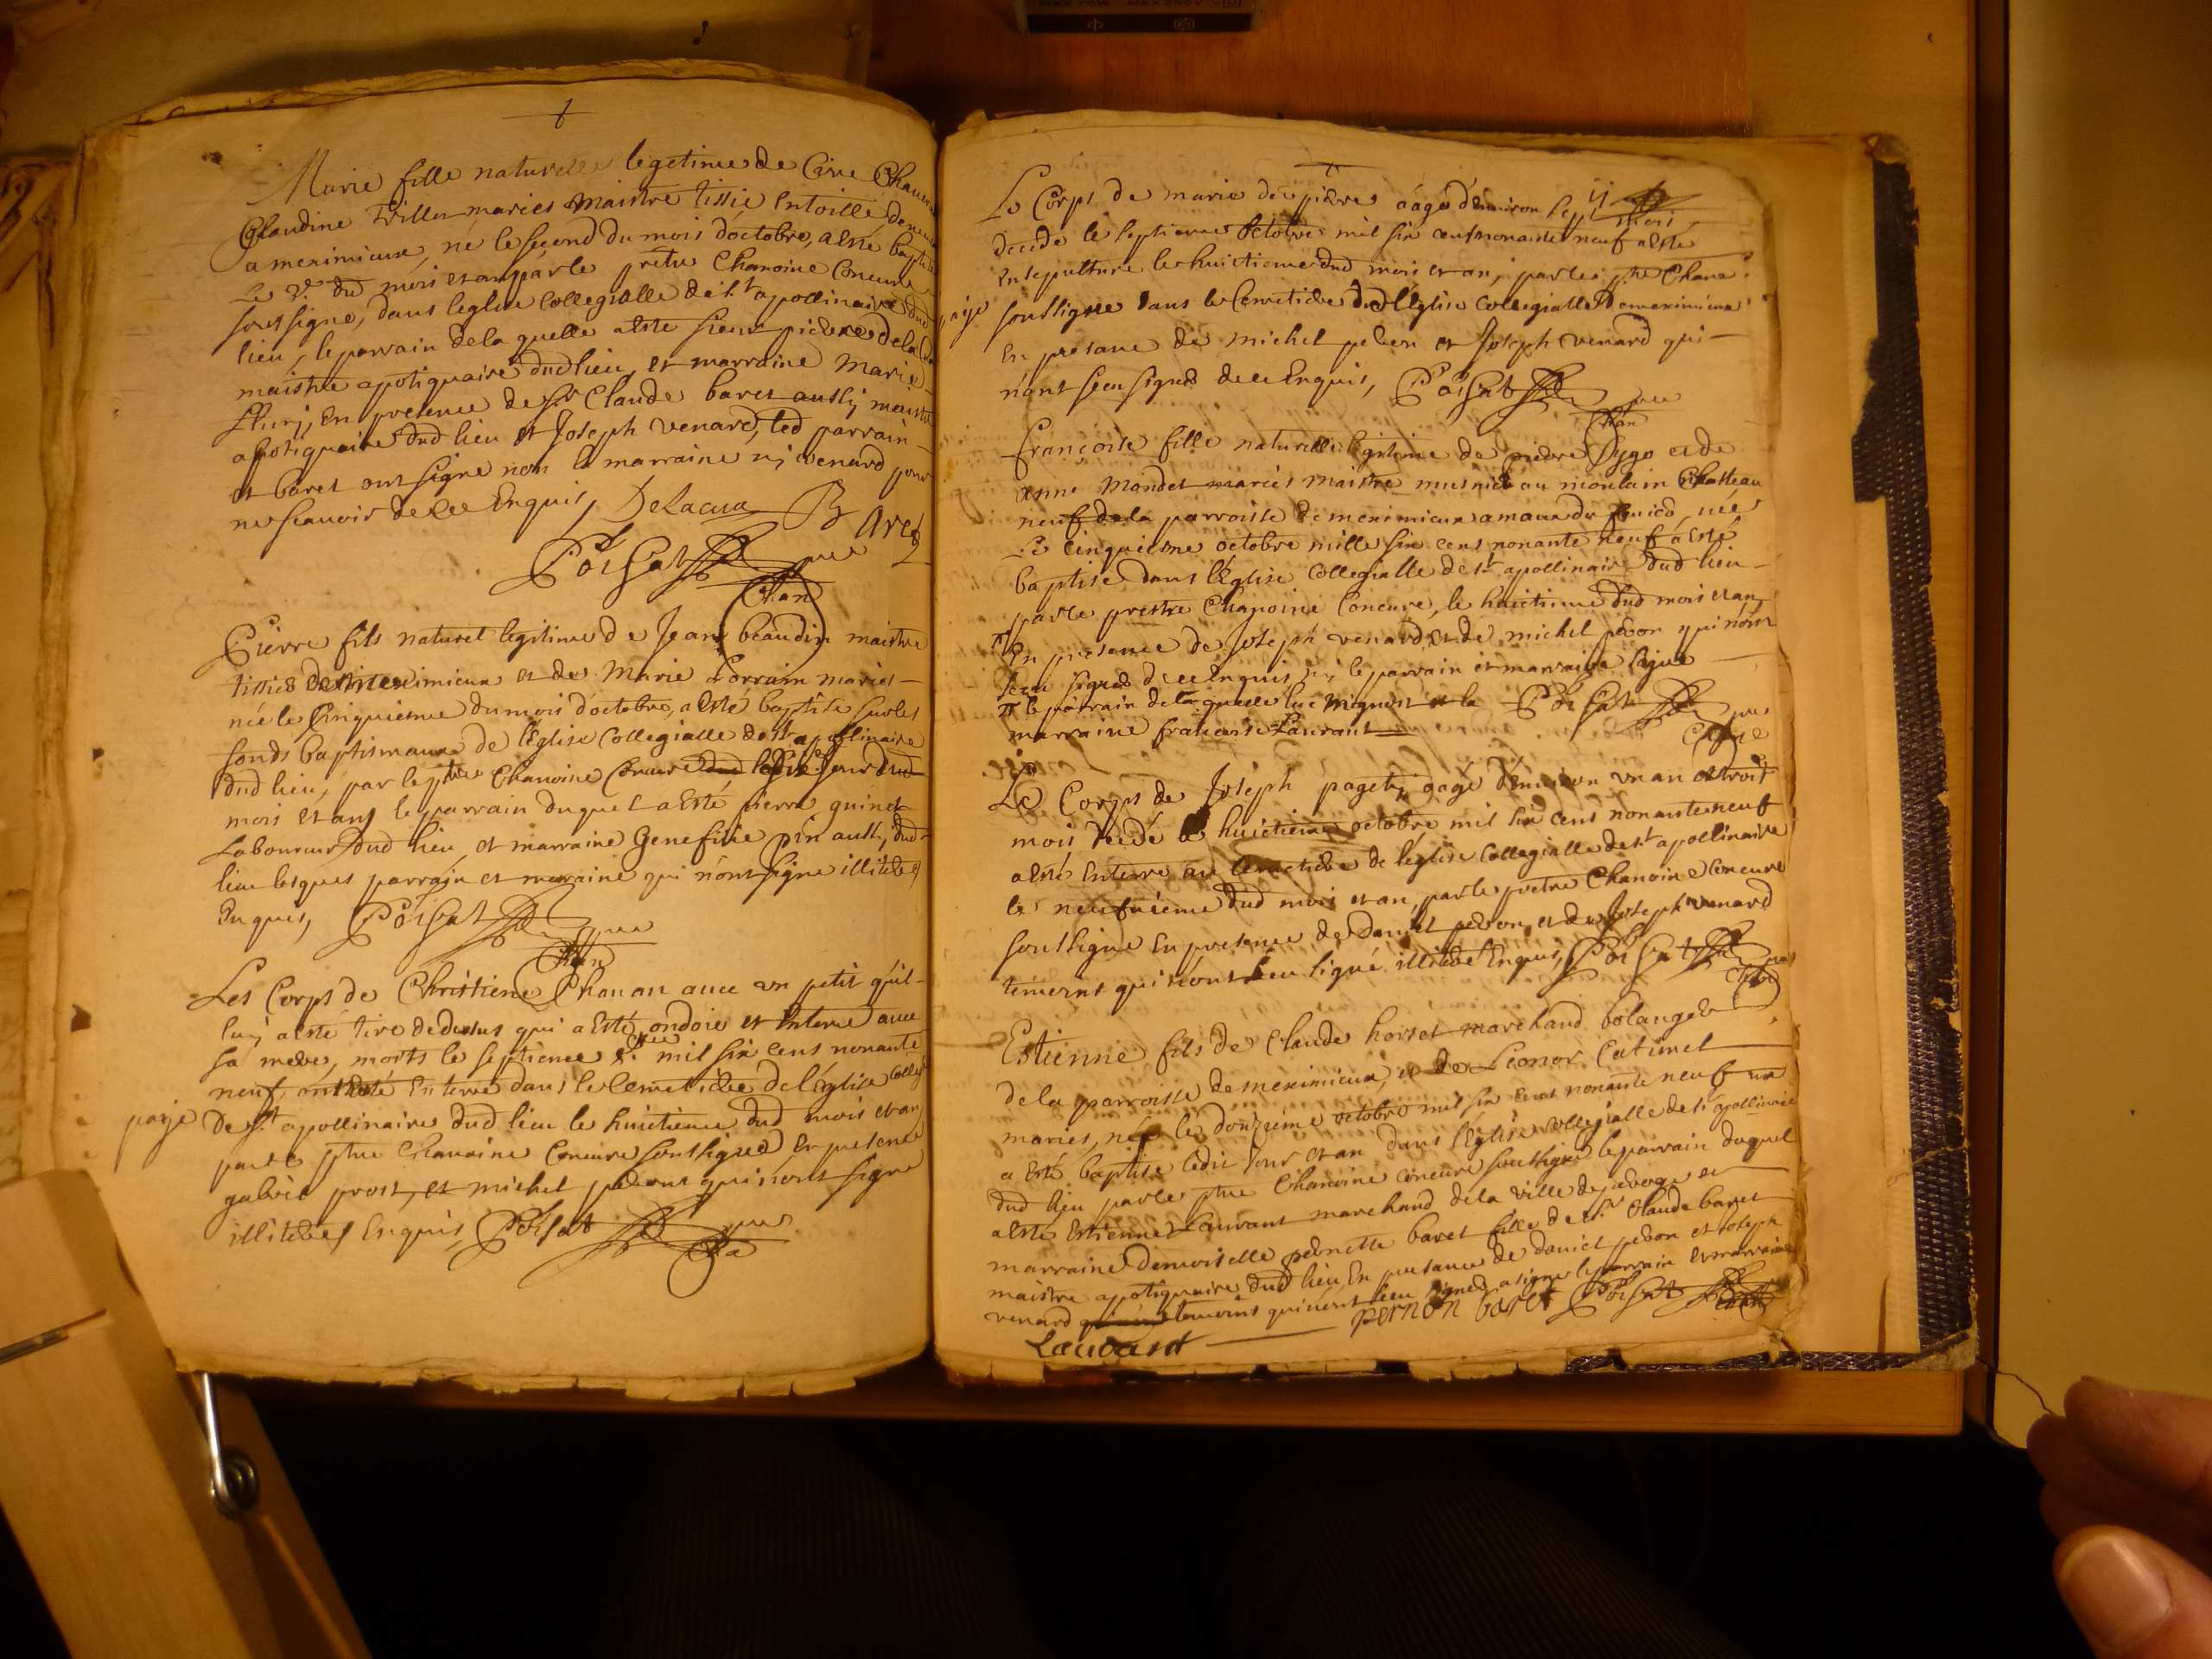 Marie fille naturelle legetime de Cire Chanu
Claudine Willer maries maistre tissie en toille demeu
a meximieux, né le second du mois doctobre, a esté baptise
le dud mois et an par le pretre Chanoine Concure
soussigne, dans leglise Collegialle de st apollinaire dud
lieu, le parrain de la quelle a esté sieur pierre dela
maistre apotiquaire dud lieu, et marraine Marie
fleurj, En presence de sr Claude baret aussij maistre
apotiquaire dud lieu et Joseph venard, led parrain
et baret ont signe non la marraine nj venard pour
ne scauoir de ce Enquis, Delacua Baret
Poisat pre
Chan
Pierre fils naturel legitime de Jean beaudin maistre
tissie de meximieux et de Marie Lorrain maries
née le Cinquiesme du mois doctobre, a esté baptise sur les
fonds baptismaux de l'Eglise Collegialle de st apollinaire
dud lieu, par le ptre Chanoine Concure jour dud
mois et an, le parrain duquel a esté pierre guinet
Laboureur dud lieu, et marraine genefiue pin aussj dud
lieu lesques parrain et marraine qui n'ont signe illiteres
Enquis, Poisat pre
Chan
Les Corps de Christiene Chanan auec un petit qu'il
luij a esté tire dedessus qui a esté ondoie et Enterre auec
sa mere, morts le septieme 8bre mil six cens nonante
neuf, ont esté Enterre dans le Cemetiere de l'Eglise Colleg
De st apollinaire dud lieu le huictieme dud mois et an
paye
par le ptre Chanoine Concure soussigned En presence
gabriel prost, et michel pedron qui n'ont signe
illiteres Enquis, Poisat pre
Cha
Le Corps de marie de pierre áagé d'enuiron sept mois
decede le septieme octobre mil six cens nonante neuf a esté
Ensepulture le huictieme dud mois et an, par le ptre Chane
paye
soussigne dans le Cemetiere de l'Eglise Collegialle de meximieux
En presance de michel pedron et Joseph venard qui
n'ont sceu signed de ce Enquis, Poisat pre
Chan
françoise fille naturelle legitime de pierre et de
anne Mondet maries maistre musnier au moulain Chasteau
neuf de la parroisse de meximieux née
le cinquiesme octobre mille six cens nonante neuf a esté
baptise dans l'Eglise Collegialle de st apollinaire dud lieu
par le prestre Chanoine Concure, le huictieme dud mois et an
En presence de Joseph venard et de michel pedron qui nont
sceu signed de ce Enquis nj le parrain et marraine signe
le parrain de la quelle luc mignost et la Poisat pre
marraine francoise Laurant Chane
Le Corps de Joseph paget, aagé d'enuiron un an et trois
mois decedé le huictieme octobre mil six cens nonante neuf
a esté Enterre au Cemetiere de l'eglise Collegialle de st apollinaire
le neufuieme dud mois et an, par le pretre Chanoine Concure
soussigne En presence de Daniel pedron, et de Joseph venard
temoins qui n'ont sceu signé illiteré Enquis, Poisat pre
Chan
Estienne fils de Claude hoiret marchand bolanger
de la parroisse de meximieux, et de Leonor Catimel
maries, née le douzieme octobre mil six cens nonante neuf
a esté baptise ledit jour et an dans l'Eglise Collegialle de st apollinaire
dud lieu par le ptre Chanoine Concure soussigne le parrain duquel
a esté Estienne Laurant marchand de la ville de et
marraine demoiselle pernette baret fille de sr Claude baret
maistre apotiquaire dud lieu En presance de daniel pedron et Joseph
venard temoins qui n'ont sceu signed a signe le parrain et marraine
pernon baret Poisat Chan
Laurant